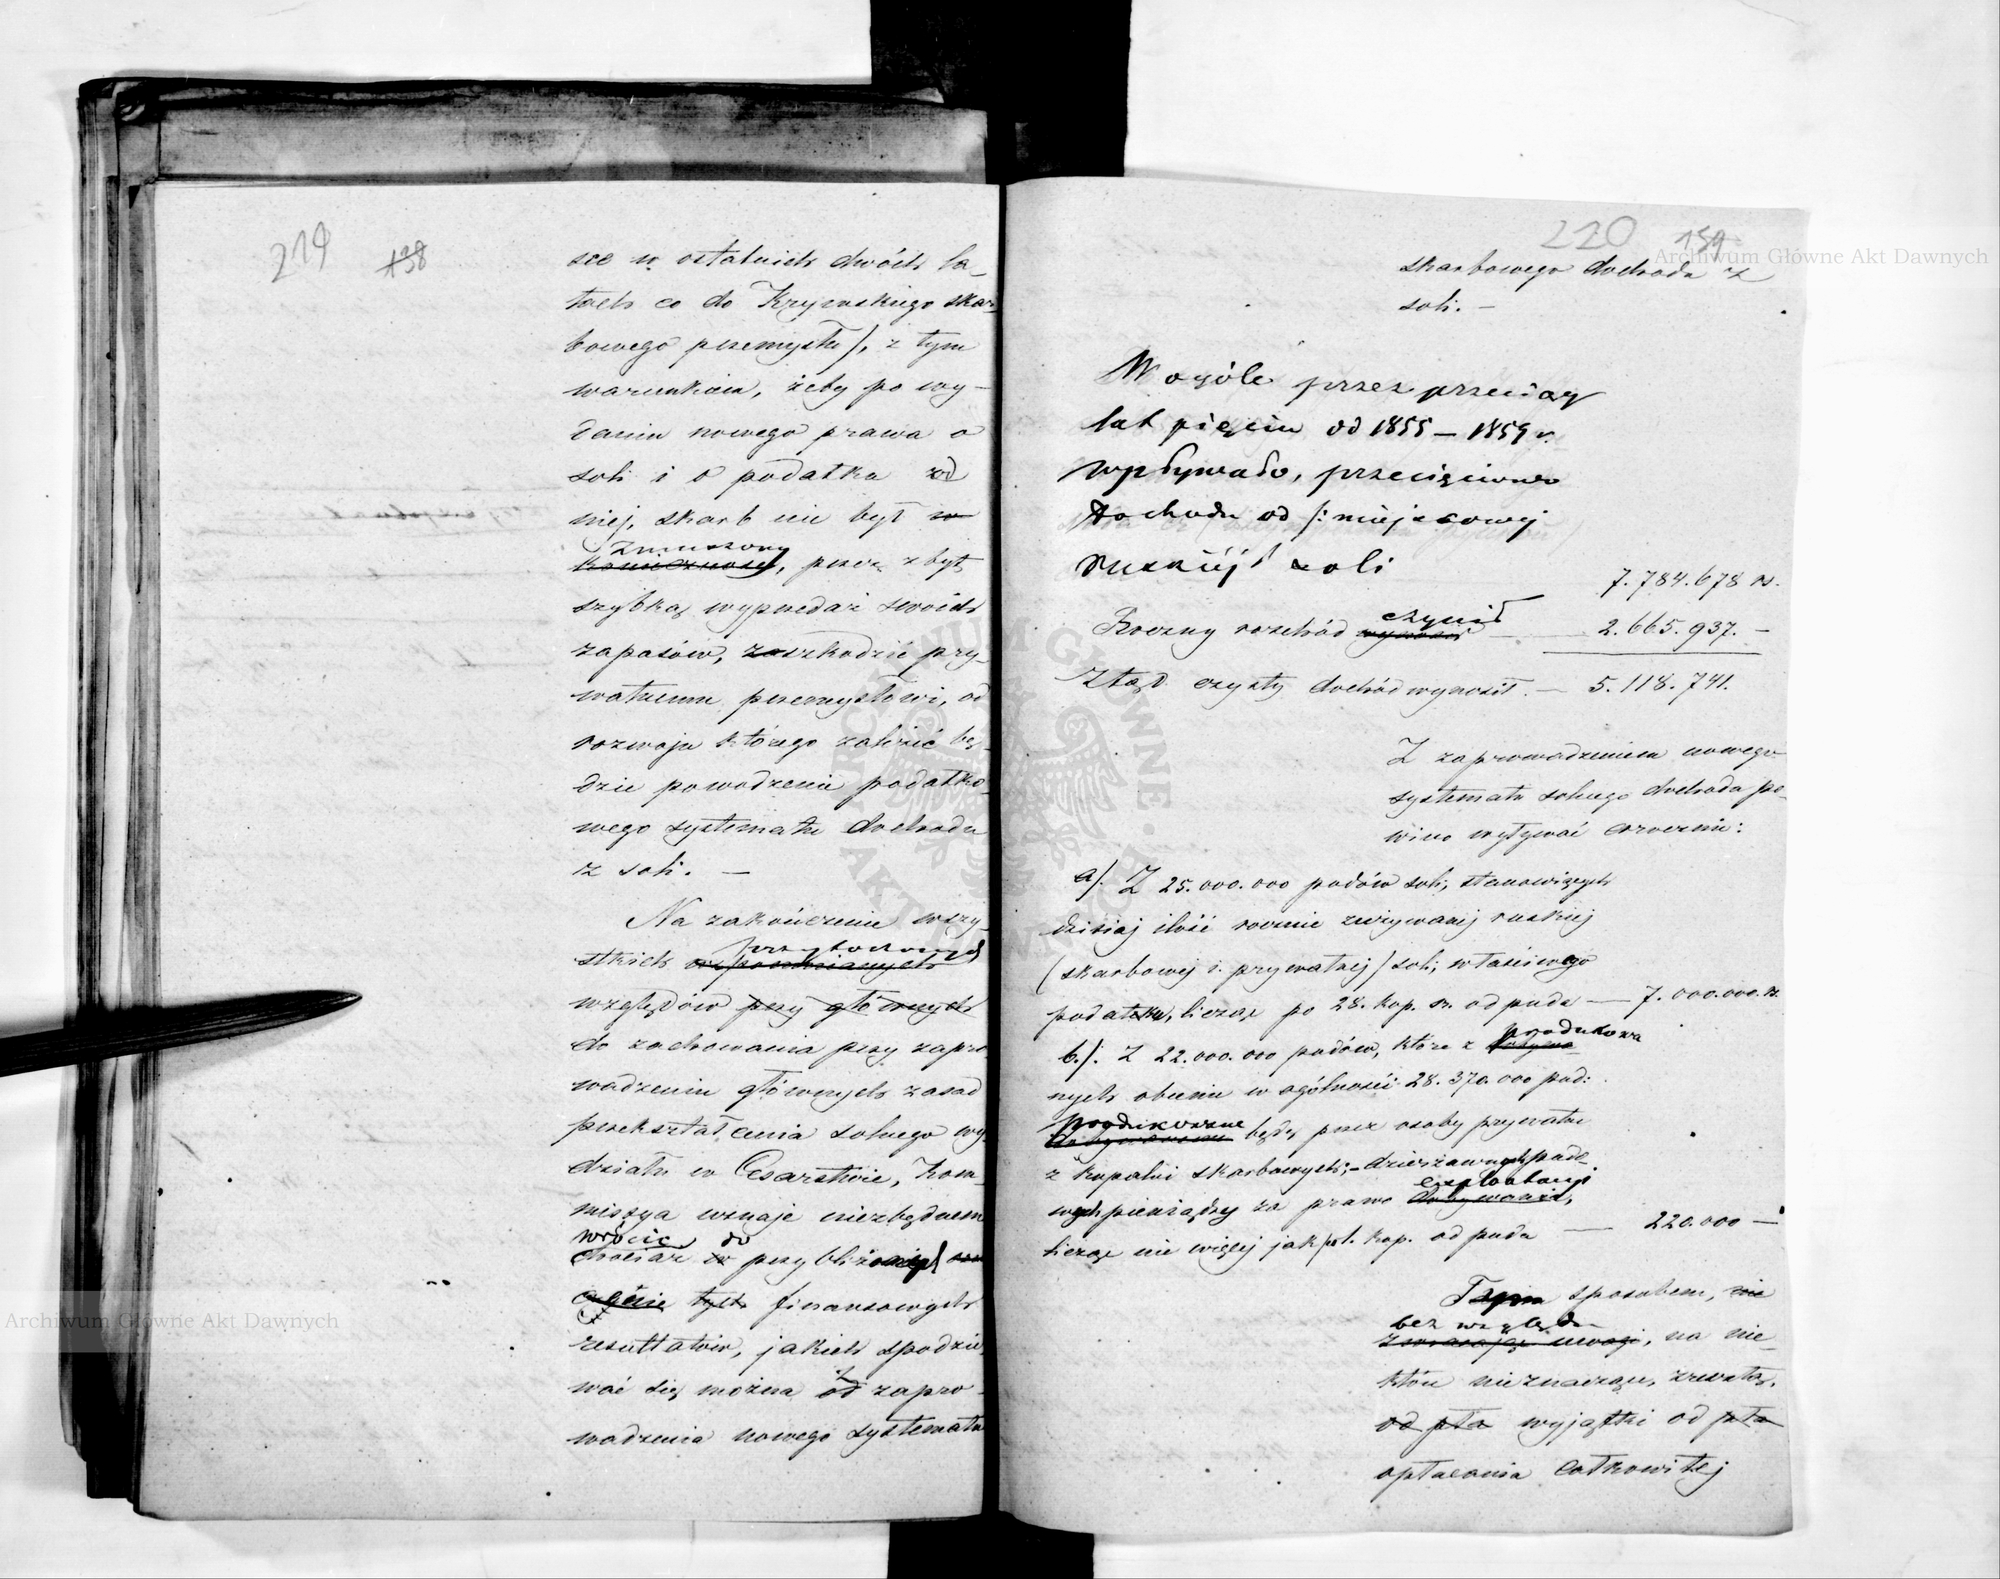 219 138
sce w ostatnich dwóch la-
tach co do Krymskiego skar-
bowego przemysłu/, z tym
warunkiem, żeby po wy-
daniu nowego prawa o
soli i o podatku od
niej, skarb nie był w
zmuszony
konieczności, przez zbyt
szybką wyprzedaż swoich
zapasów, zaszkodzić pry-
watnemu przemysłowi, od
rozwoju którego zależeć bę-
dzie powodzenie podatko-
wego systematu dochodu
z soli. —
Na zakończenie wszy-
przytoczonych
stkich
względów przy głównych
do zachowania przy zapro-
wadzeniu głównych zasad
przekształcenia solnego wy-
działu w Cesarstwie, Kom-
missya uznaje niezbędnem
wrócić do
chociaż w przybliżeniu
ogóle tych finansowych
rezultatów, jakich spodzie-
wać się można od zapro-
wadzenia nowego systematu
220 139
skarbowego dochodu z
soli. —
W ogóle przez przeciąg
lat pięciu od 1855 – 1859 r.
wpływało, przecięciowo
dochodu od /: miejscowej
ruskiej/ soli
7.784.678 rs.
czynił
Roczny rozchód wynosił — 2.665.937. —
Ztąd czysty dochód wynosił. — 5.118.741.
Z zaprowadzeniem nowego
systematu solnego dochodu po-
winno wpływać corocznie:
a/. Z 25.000.000 pudów soli, stanowiących
dzisiaj ilość rocznie zużywanej ruskiej
(skarbowej i prywatnej) soli, właściwego
podatku, licząc po 28. kop. sr. od puda — 7.000.000. rs.
produkowa
b./. Z 22.000.000 pudów, które z
nych obecnie w ogólności 28.370.000 pud:
produkowane
będą przez osoby prywatne
z kopalni skarbowych; – dzierżawnych
exploatacyi
pieniędzy za prawo dobywania,
licząc nie więcej jak po 1. kop. od puda — 220.000 —
Tym sposobem, nie
bez względu
zwracając uwagi, na nie-
które nieznaczące, zresztą,
od pła wyjątki od pła
opłacania całkowitej
Archiwum Główne Akt Dawnych
Archiwum Główne Akt Dawnych